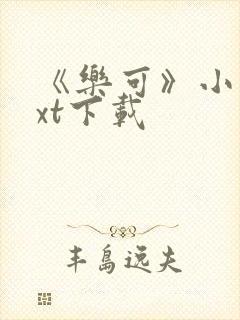 《樂可》小
xt下載
丰島远夫